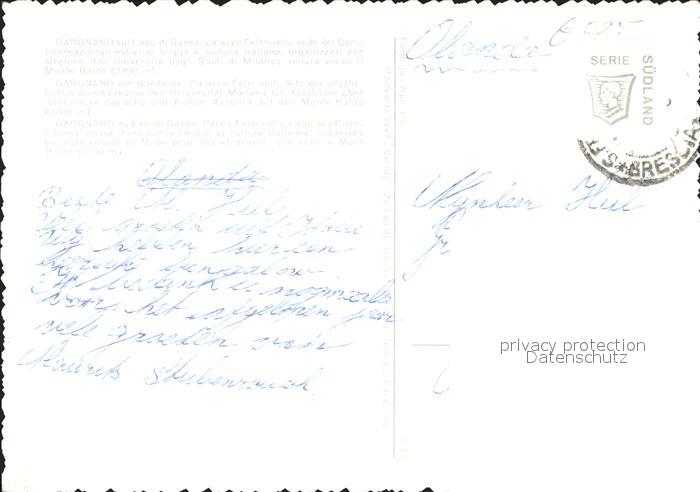 GARGNANO sul Lago di Garda; palazzo Feltrinelli, sede dei Corsi
Internazionali estivi di lingua e cultura italiana, organizzati per
stranieri dall'Università degli Studi di Milano; veduta verso il
Monte Baldo (2200 m).
GARGNANO am Gardasee, Palais Feltrinelli, Sitz der alljähr-
lichen Sommerkurse der Universität Mailand für Ausländer über
italienische Sprache und Kultur. Ausblick auf den Monte Baldo
(2200 m).
GARGNANO au Lac de Garda; Palais Feltrinelli, siège des Cours
Internationaux d'été sur la langue et culture italienne, organisés
par l'Université de Milan pour des étrangers; vue vers le Mont
Baldo (2200 m).
Olanda
Beste M. Hul
Vele groeten uit Italie
Wij hebben hier een
bungalow.
En bedankt u nogmaals
voor het afgelopen jaar
vele groeten van
Maurits Stubenrouch
Olanda
SERIE
SÜDLAND
BRESCIA
Mynheer Hul
privacy protection
Datenschutz